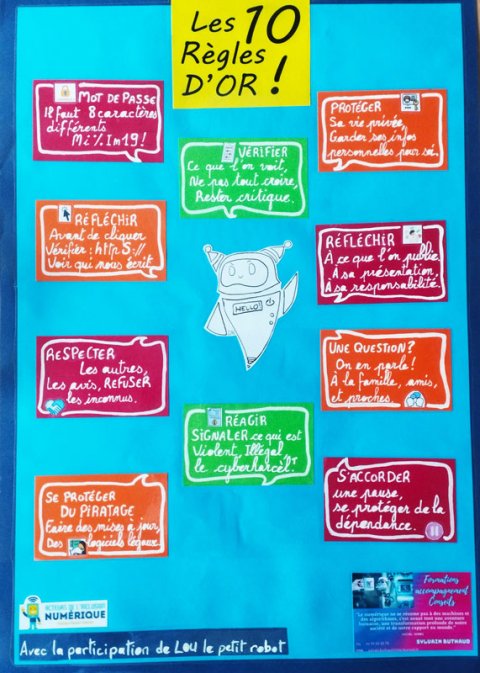 Les 10
Règles
D'OR !
MOT DE PASSE
Il faut 8 caractères
différents
Mi%Im19!
VÉRIFIER
Ce que l'on voit,
Ne pas tout croire,
Rester critique.
PROTÉGER
Sa vie privée,
Garder ses infos
personnelles pour soi.
RÉFLÉCHIR
Avant de cliquer
Vérifier : https://
Voir qui nous écrit.
HELLO!
RÉFLÉCHIR
À ce que l'on publie,
À sa présentation,
À sa responsabilité.
RESPECTER
Les autres,
Les avis, REFUSER
les inconnus.
RÉAGIR
SIGNALER ce qui est
Violent, Illégal
le cyberharcèl.t
UNE QUESTION?
On en parle!
À la famille, amis,
et proches.
SE PROTÉGER
DU PIRATAGE
Faire des mises à jour,
Des logiciels légaux.
S'ACCORDER
une pause,
se protéger de la
dépendance.
ACTEURS DE L'INCLUSION
NUMÉRIQUE
Avec la participation de LOU le petit robot
Formations
accompagnement
Conseils
"Le numérique ne se résume pas à des machines et
des algorithmes, c'est avant tout une aventure
humaine, une transformation profonde de notre
société et de notre rapport au monde."
SYLVAIN BUTHAUD